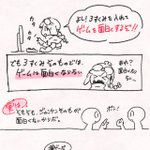 よし!3すくみを入れて
ゲームを面白くするぞ!!
カタ
カタ
でも3すくみそのものでは、
ゲームは面白くならない
あれ?
面白くない
ジャンケンそのものが
面白くないからだ。
ポン!